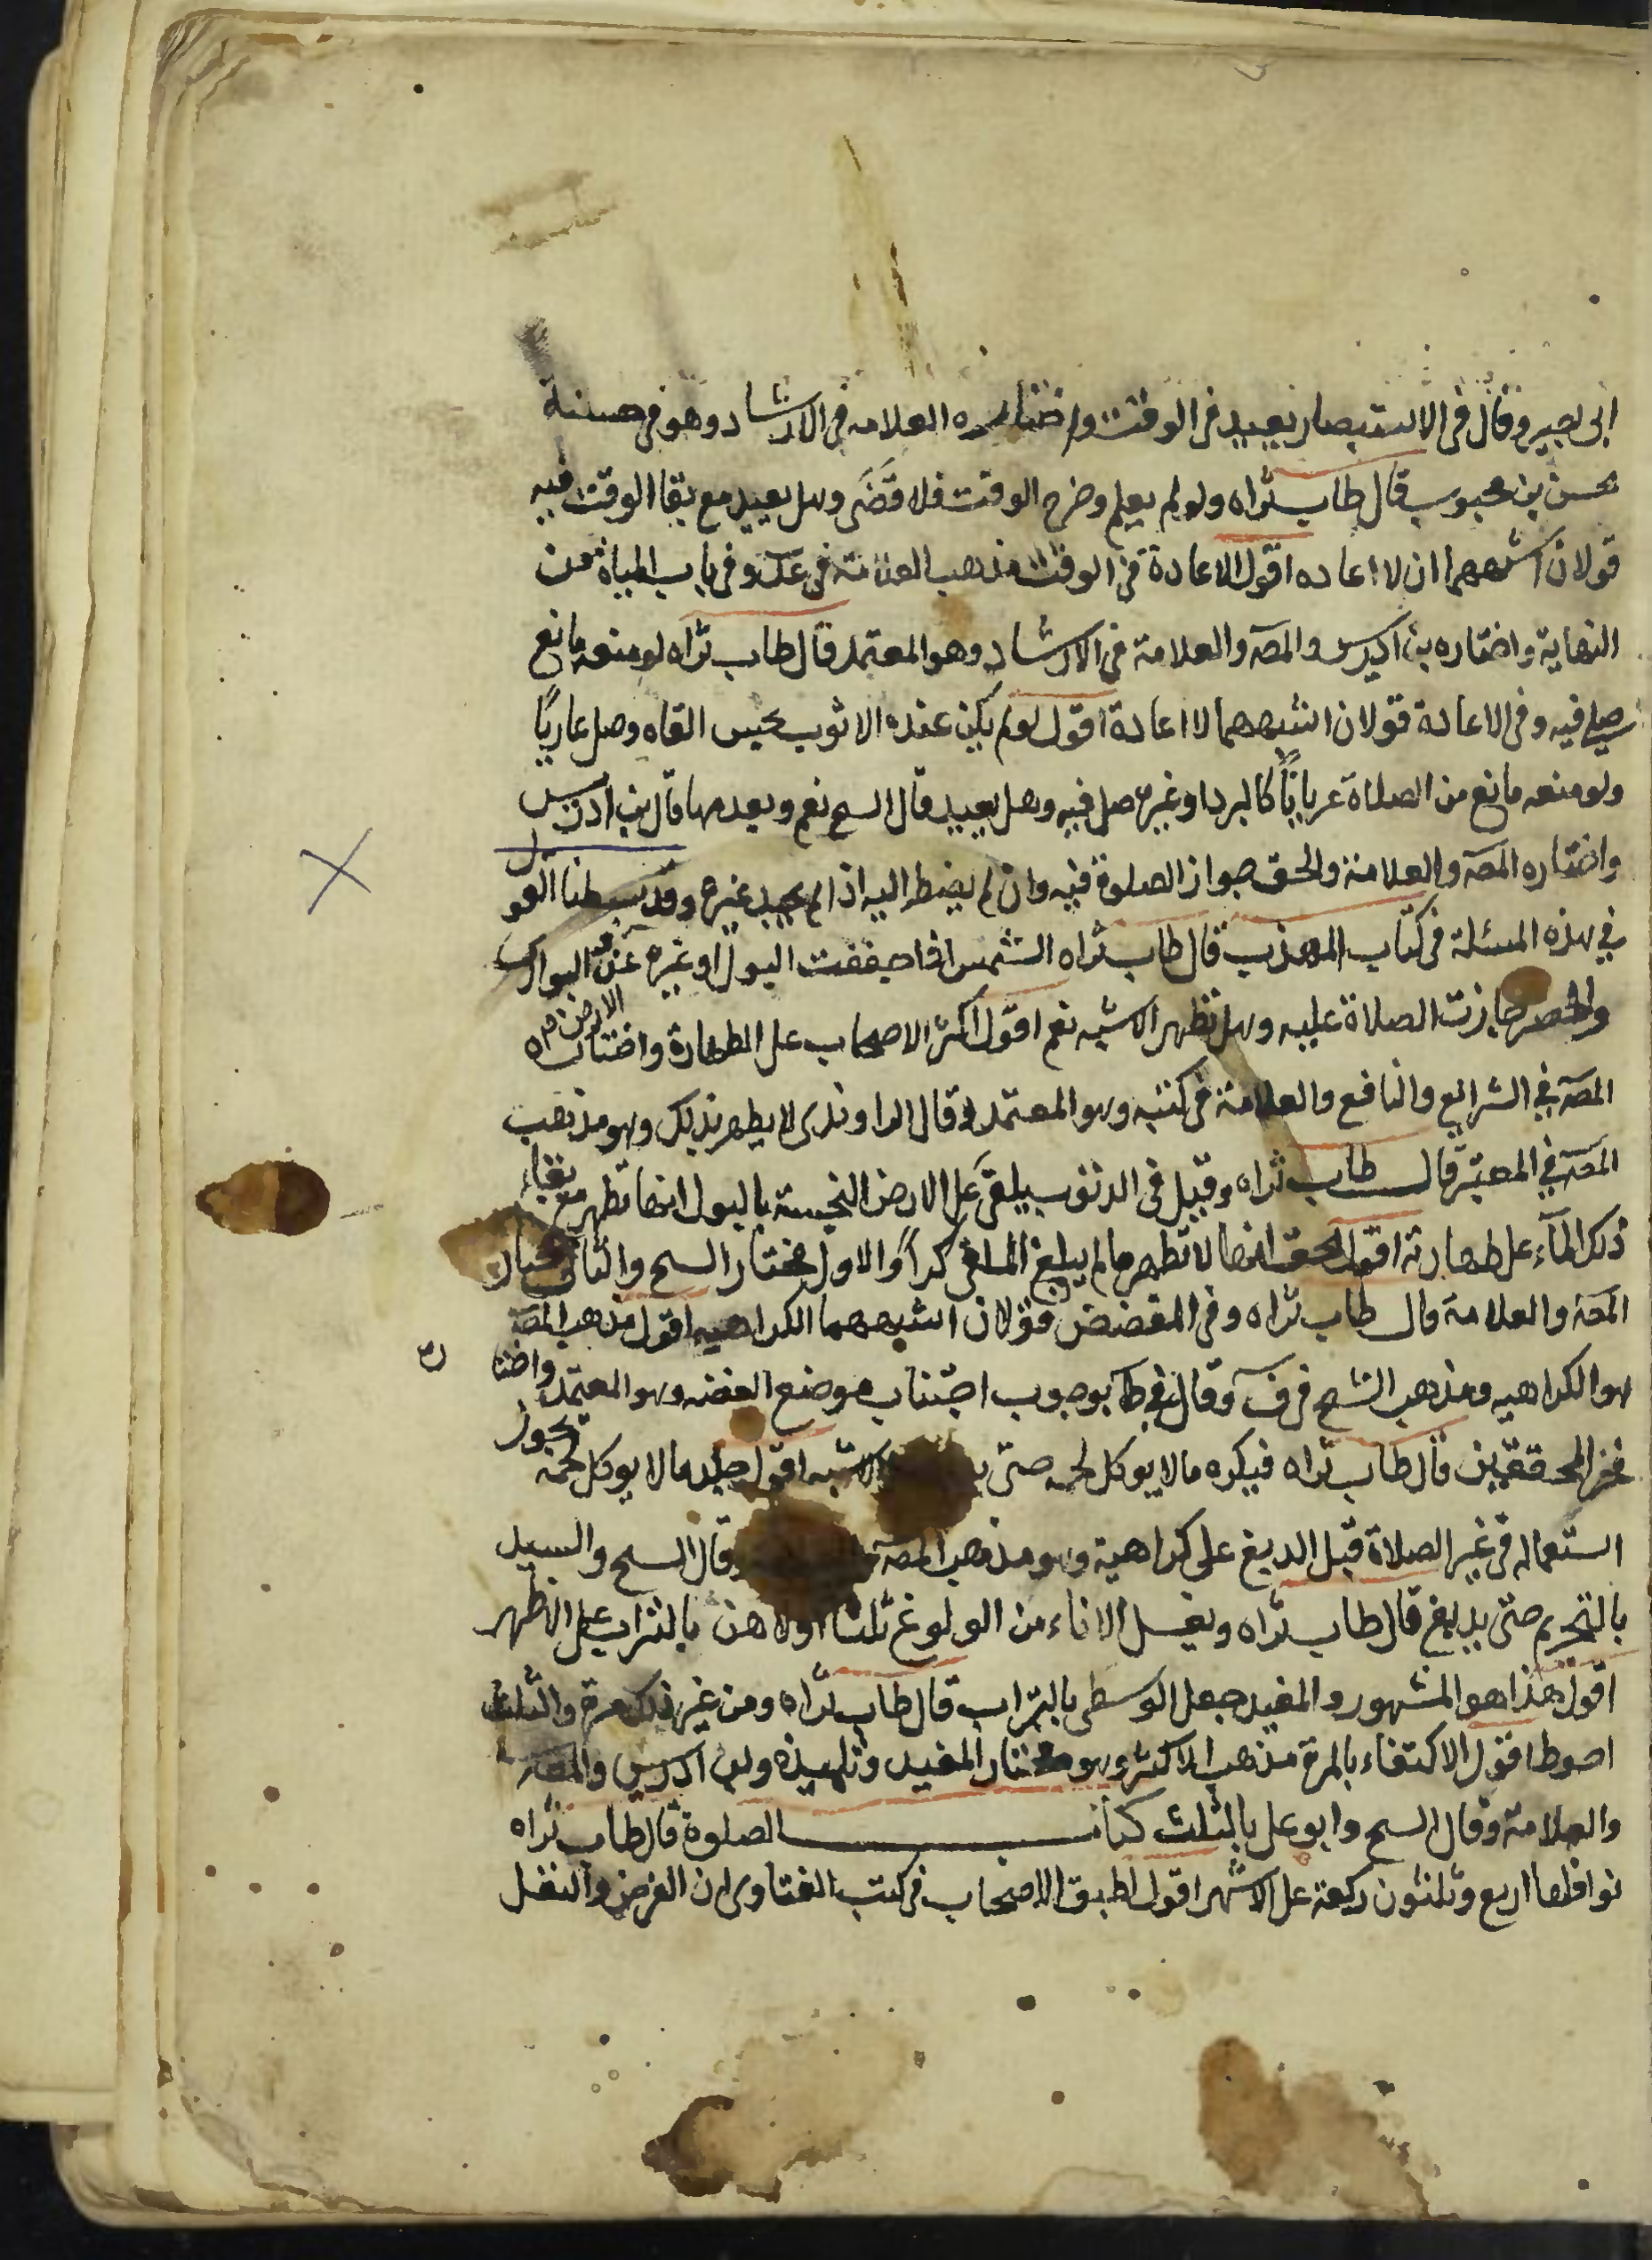 ابى بصير وقال فى الاستبصار يعيد فى الوقت واختاره العلامه فى الارشاد وهو فى حسنة
محسن بن محبوب قال طاب ثراه ولو لم يعلم وخرج الوقت فلا قضى وهل يعيد مع بقا الوقت فيه
قولان اشبههما ان لا اعاده اقول الاعادة فى الوقت مذهب العلامة فى عد وفى باب المياه من
النهاية واختاره بن ادريس والمصـ والعلامة فى الارشاد وهو المعتمد قال طاب ثراه لو منعه مانع
صلى فيه وفى الاعادة قولان اشبههما لا اعادة اقول لو لم يكن عنده الا ثوب نجس القاه وصلى عاريًا
ولو منعه مانع من الصلاة عرياناً كالبرد او غيره صلى فيه وهل يعيد قال السح نعم وبعدمها قال بن ادريس
واختاره المصـ والعلامة والحق جواز الصلوة فيه وان لم يضطر اليه اذا لم يجد غيره وقد بسطنا القول
في هذه المسئلة فى كتاب المهذب قال طاب ثراه الشمس اذا جففت البول او غيره عن البوارى
والحصر جازت الصلاة عليه وهل تطهر الاشبه نعم اقول اكثر الاصحاب على الطهارة واختاره
الارض م
المصـ في الشرايع والنافع والعلامة فى كتبه وهو المعتمد وقال الراوندى لا يطهر بذلك وهو مذهب
المصـ في المعتبر قال طاب ثراه وقيل فى الذنوب يلقى على الارض النجسة بالبول انها تطهر مع بقاء
ذلك المآء على طهارته اقول الحق انها لا تطهر ما لم يبلغ الملقى كراً والاول مختار السح والثانى مختار
المصـ والعلامة قال طاب ثراه وفى المفضض قولان اشبههما الكراهيه اقول مذهب المصـ
هو الكراهيه ومذهب الشح فى ف وقال فى ط بوجوب اجتناب موضع الفضه وهو المعتمد واختا
ره
فخر المحققين قال طاب ثراه فيكره ما لا يوكل لحمه حتى الاشبه اقول جلد ما لا يوكل لحمه يجوز
استعماله فى غير الصلاة قبل الدبغ على كراهية وهو مذهب المصـ وقال السح والسيد
بالتحريم حتى يدبغ قال طاب ثراه ويغسل الاناء من الولوغ ثلثا اولاهن بالتراب على الاظهر
اقول هذا هو المشهور والمفيد جعل الوسطى بالتراب قال طاب ثراه ومن غير ذلك مرة والثلث
احوط اقول الاكتفاء بالمرة مذهب الاكثر وهو مختار المفيد وتلميذه وبن ادريس والمصـ
والعلامة وقال السح وابو على بالثلث كتاب الصلوة قال طاب ثراه
نوافلها اربع وثلثون ركعة على الاشهر اقول اطبق الاصحاب فى كتب الفتاوى ان الفرض والنفل